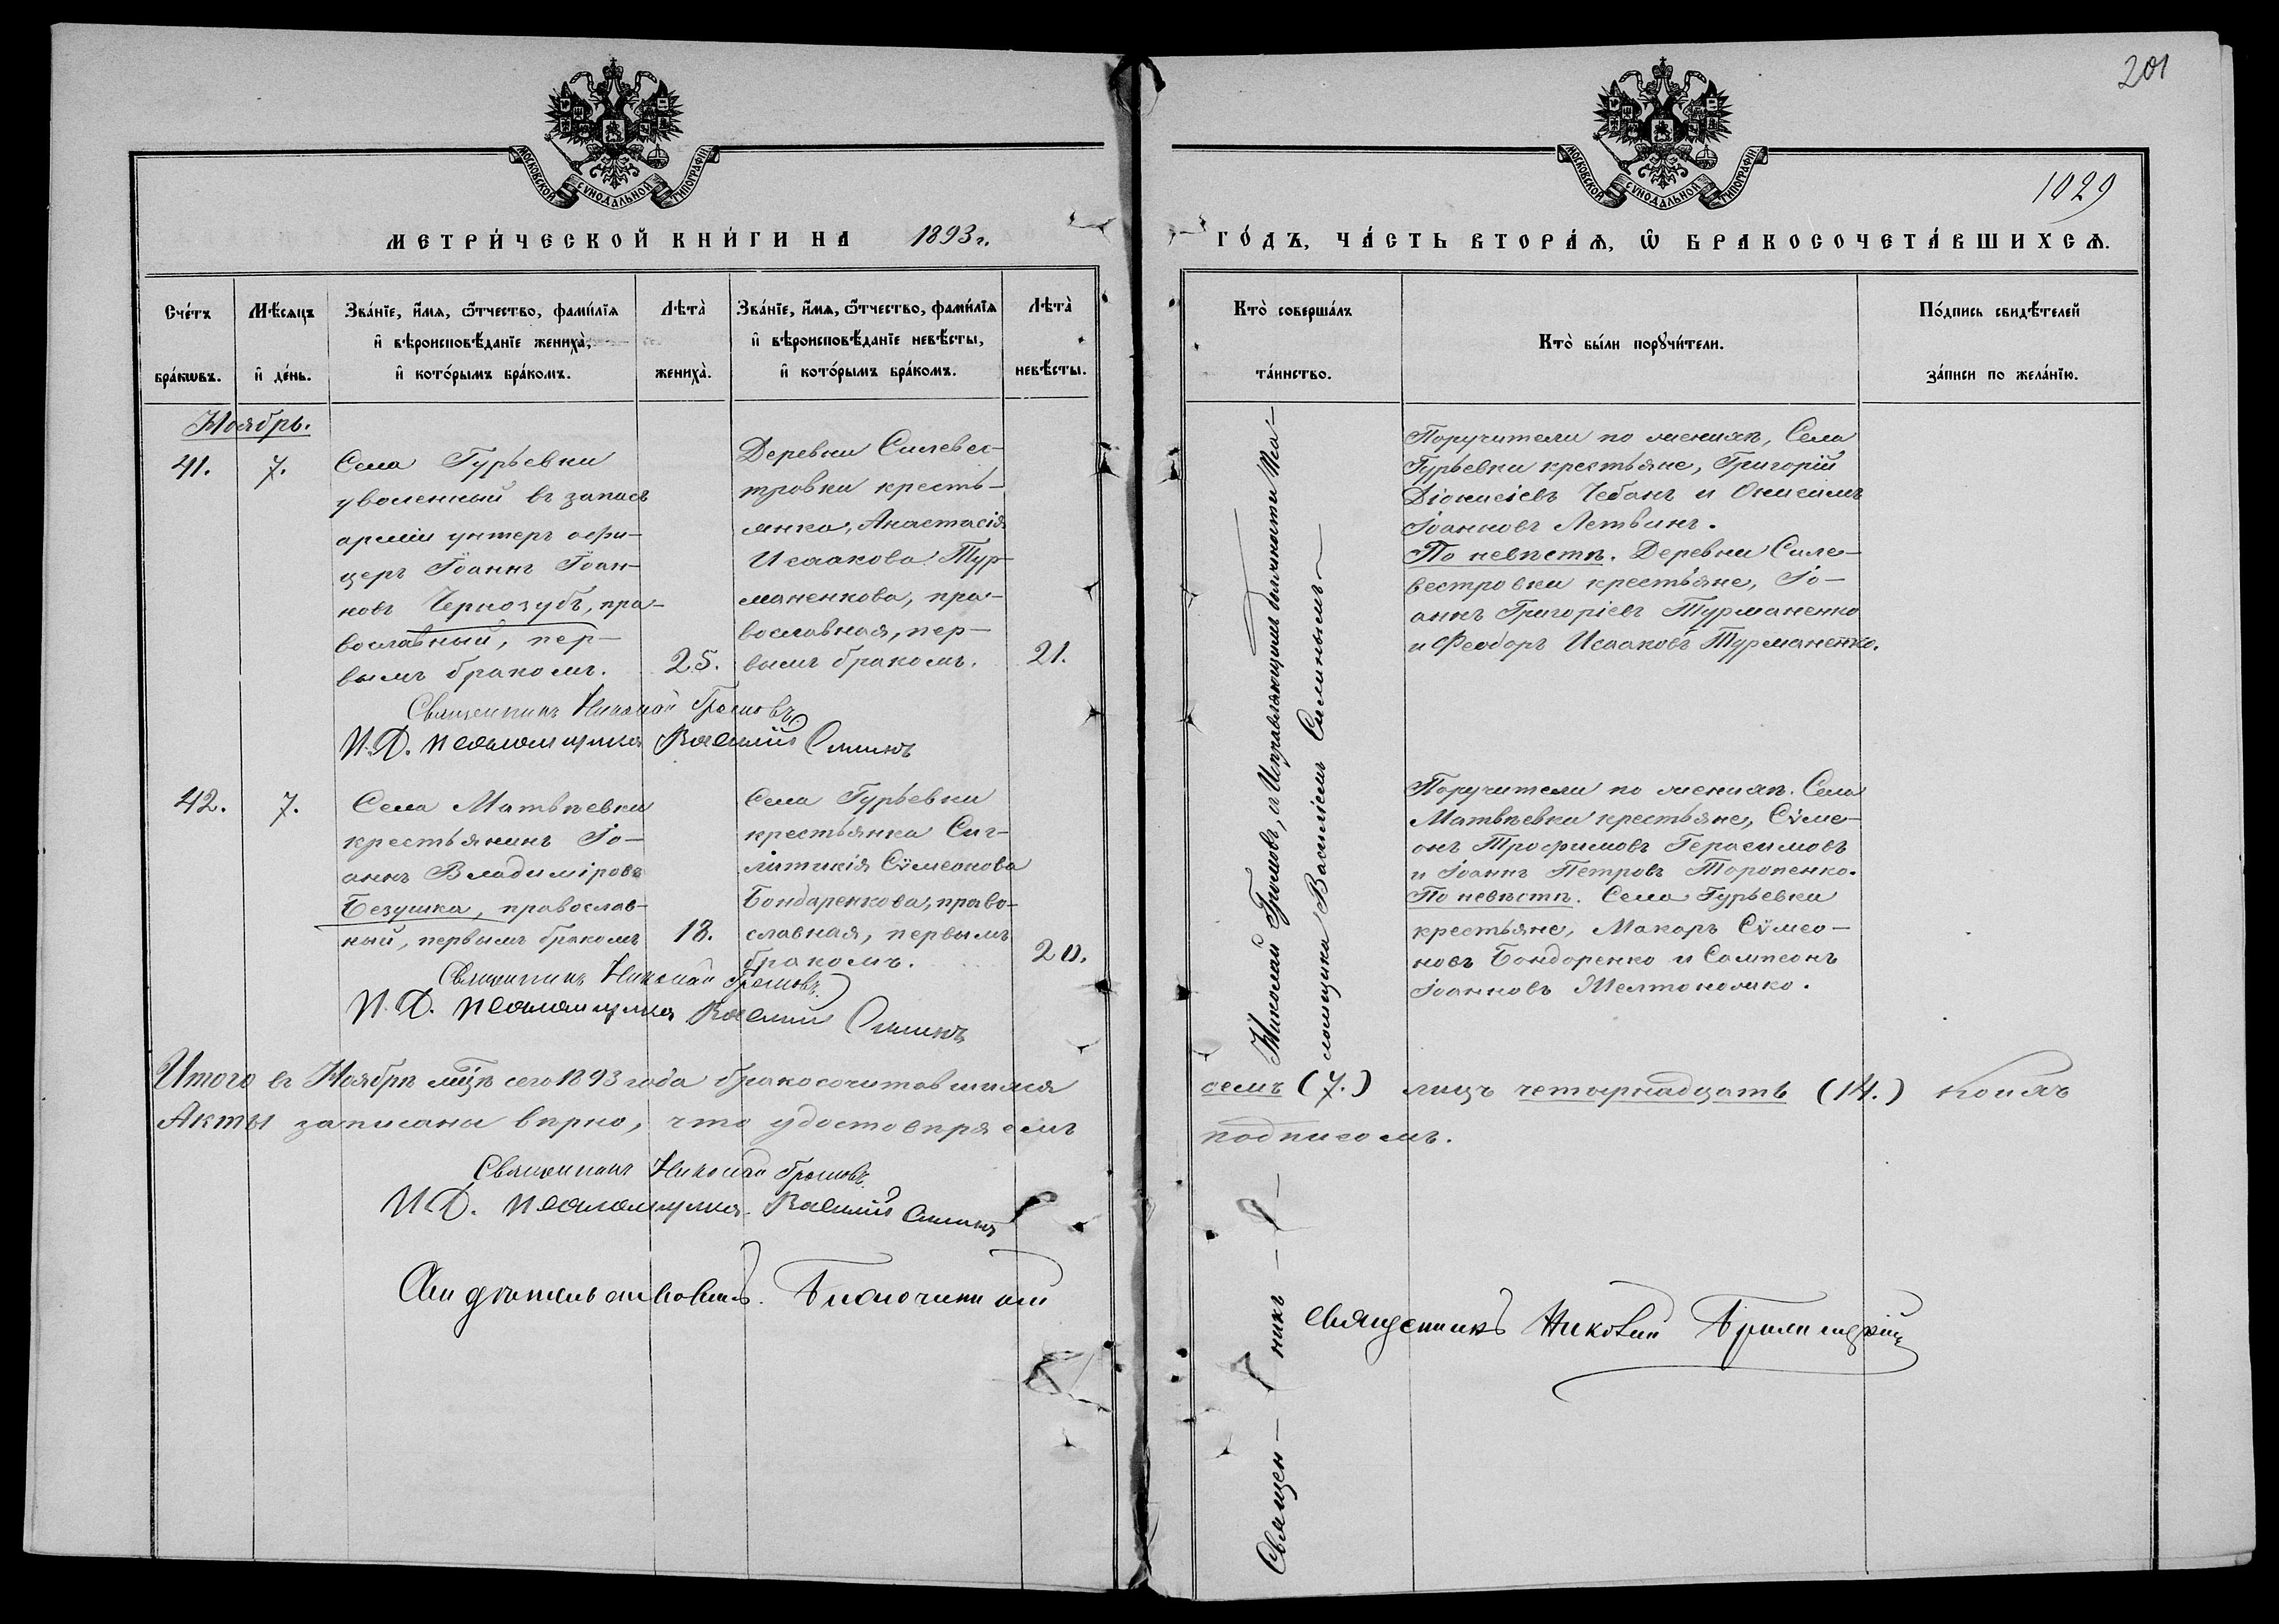 201
1029
МОСКОВСКОЙ СѴНОДАЛЬНОЙ ТИПОГРАФІИ
МОСКОВСКОЙ СѴНОДАЛЬНОЙ ТИПОГРАФІИ
МЕТРИ́ЧЕСКОЙ КНИ́ГИ НА 1893 г.
ГО́ДЪ, ЧА́СТЬ ВТОРА́Ѧ, Ѽ БРАКОСОЧЕТА́ВШИХСѦ.
Сче́тъ бра́кѡвъ.
Мѣ́сѧцъ и҆ де́нь.
Зва́нїе, и҆́мѧ, ѻ҆́тчество, фами́лїѧ
и҆ вѣроисповѣ́данїе жениха̀,
и҆ кото́рымъ бра́комъ.
Лѣта̀ жениха̀.
Зва́нїе, и҆́мѧ, ѻ҆́тчество, фами́лїѧ
и҆ вѣроисповѣ́данїе невѣ́сты,
и҆ кото́рымъ бра́комъ.
Лѣта̀ невѣ́сты.
Кто̀ соверша́лъ
та́инство.
Кто̀ бы́ли порꙋчи́тели.
По́дпись свидѣ́телей
за́писи по жела́нїю.
Ноябрь.
41.
7.
Села Гурьевки
уволенный въ запасъ
арміи унтеръ офи-
церъ Іоаннъ Іоан-
новъ Чернозубъ, пра-
вославный, пер-
вымъ бракомъ.
25.
Деревни Силевес-
тровки кресть-
янка, Анастасія
Исаакова Тур-
маненкова, пра-
вославная, пер-
вымъ бракомъ.
21.
Священникъ Николай Громовъ
И. Д. псаломщика Василій Силинъ
Поручители по женихѣ, Села
Гурьевки крестьяне, Григорій
Діонисіевъ Чебанъ и Онисимъ
Іоанновъ Летвинъ.
По невѣстѣ. Деревни Силе-
вестровки крестьяне, Іо-
аннъ Григоріевъ Турманенко
и Феодоръ Исааковъ Турманенко.
42.
7.
Села Матвѣевки
крестьянинъ Іо-
аннъ Владиміровъ
Безушка, православ-
ный, первымъ бракомъ
18.
Села Гурьевки
крестьянка Син-
литикія Сѵмеонова
Бондаренкова, право-
славная, первымъ
бракомъ.
20.
Священникъ Николай Громовъ
И. Д. псаломщика Василій Силинъ
Поручители по женихѣ. Села
Матвѣевки крестьяне, Сѵме-
онъ Трофимовъ Герасимовъ
и Іоаннъ Петровъ Торопенко.
По невѣстѣ. Села Гурьевки
крестьяне, Макаръ Сѵмео-
новъ Бондаренко и Сампсонъ
Іоанновъ Желтоножко.
Священ-никъ Николай Громовъ, съ Исправляющимъ должность Пса-
ломщика Василіемъ Силинымъ
Итого въ Ноябрѣ мцѣ сего 1893 года бракосочитавшимся
семъ (7.) лицъ четырнадцать (14.) коихъ
Акты записаны вѣрно, что удостовѣряемъ
подписомъ.
Священникъ Николай Громовъ
И. Д. псаломщика Василій Силинъ
священникъ Николай